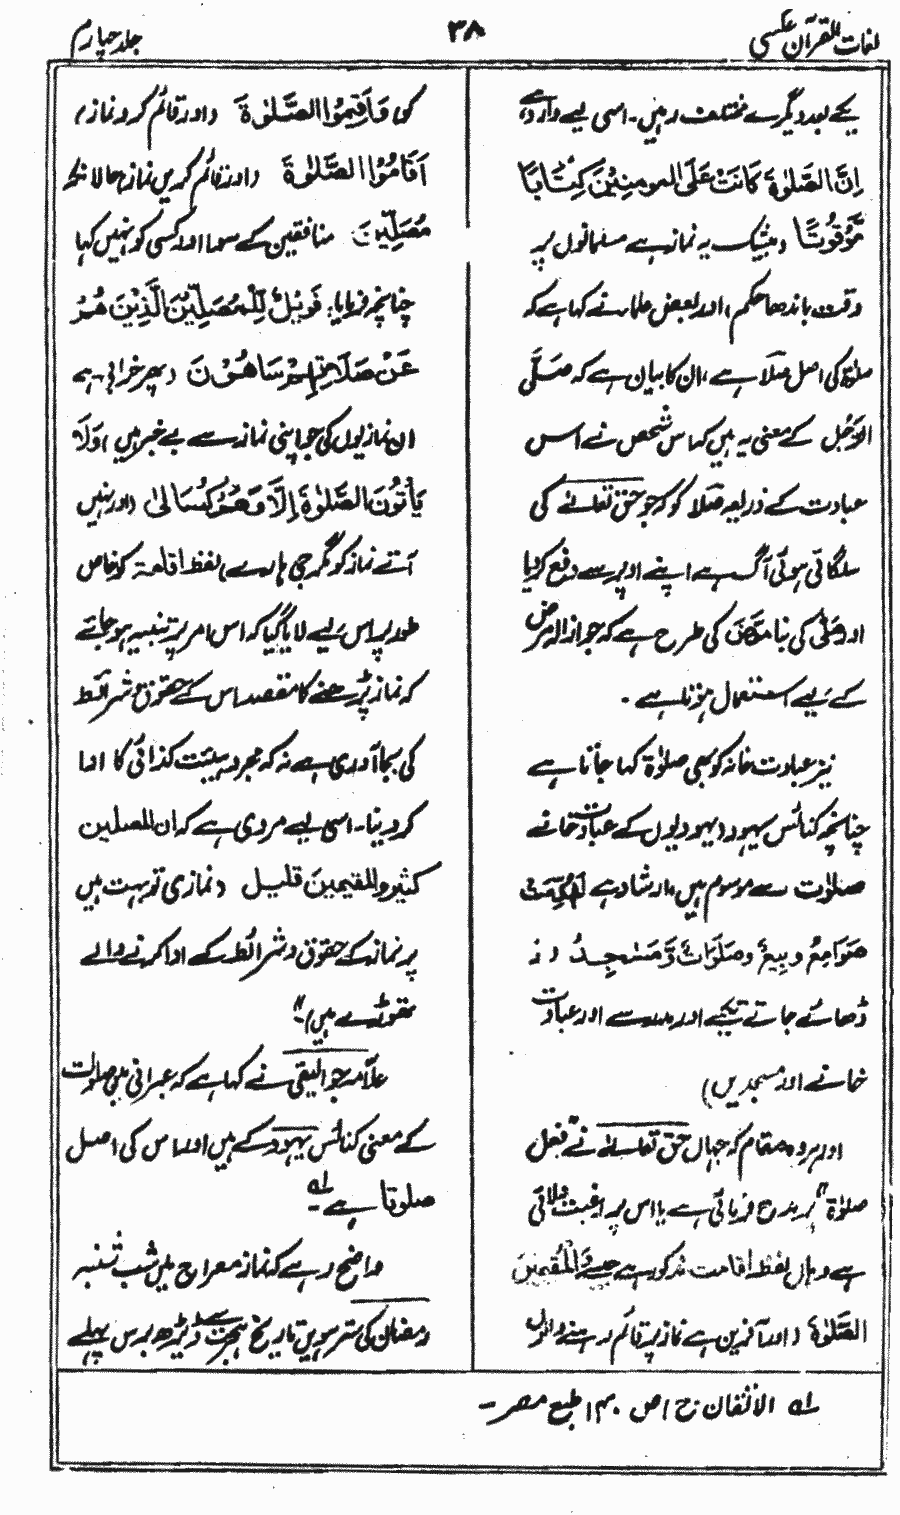 لغات القرآن عکسی
۳۸
جلد چہارم
یکے بعد دیگرے مختلف رہیں۔ اسی لیے وارد ہے
اِنَّ الصَّلٰوةَ كَانَتْ عَلَى المومنِيْنَ كِتَابًا
مَّوْقُوْتًا (بیشک یہ نماز ہے مسلمانوں پر
وقت باندھا حکم) اور بعض علماء نے کہا ہے کہ
صلوٰۃ کی اصل صَلَا ہے، ان کا بیان ہے کہ صَلَّی
الرَّجُلُ کے معنی یہ ہیں کہ اس شخص نے اس
عبادت کے ذریعہ صَلا کو کہ جو حق تعالےٰ کی
سلگائی ہوئی آگ ہے اپنے اوپر سے دفع کر دیا
اور صَلّٰی کی بنا مَرَّضَ کی طرح ہے کہ جو ازالہ مرض
کے لیے استعمال ہوتا ہے۔
نیز عبادت خانہ کو بھی صلوٰۃ کہا جاتا ہے
چنانچہ کنائس یہود (یہودیوں کے عبادت خانے
صلوٰت سے موسوم ہیں، ارشاد ہے لَهُدِّمَتْ
صَوَامِعُ وَبِيَعٌ وَصَلَوَاتٌ وَّمَسٰجِدُ (تو
ڈھائے جاتے تکیے اور مدرسے اور عبادت
خانے اور مسجدیں)
اور ہر وہ مقام کہ جہاں حق تعالےٰ نے فعل
صلوٰۃ پر مدح فرمائی ہے یا اس پر رغبت دلائی
ہے وہاں لفظ اقامت مذکور ہے جیسے وَالْمُقِيْمِيْنَ
الصَّلٰوةَ (اور آفرین ہے نماز پر قائم رہنے والوں
کو) وَاَقِيْمُوا الصَّلٰوةَ (اور قائم کرو نماز)
اَقَامُوْا الصَّلٰوةَ (اور قائم کریں نماز) حالانکہ
مُصَلِّيْنَ منافقین کے سوا اور کسی کو نہیں کہا
چنانچہ فرمایا: فَوَيْلٌ لِّلْمُصَلِّيْنَ الَّذِيْنَ هُمْ
عَنْ صَلَاتِهِمْ سَاهُوْنَ (پھر خرابی ہے
ان نمازیوں کی جو اپنی نماز سے بے خبر ہیں) وَلَا
يَأْتُوْنَ الصَّلٰوةَ اِلَّا وَهُمْ كُسَالٰى (اور نہیں
آتے نماز کو مگر جی ہارے) لفظ اقامۃ کو خاص
طور پر اس لیے لایا گیا کہ اس امر پر تنبیہ ہو جائے
کہ نماز پڑھنے کا مقصد اس کے حقوق و شرائط
کی بجا آوری ہے نہ کہ مجرد ہیئت کذائی کا ادا
کر دینا۔ اسی لیے مروی ہے کہ ان المصلین
کثیر والمقیمین قلیل (نمازی تو بہت ہیں
پر نماز کے حقوق و شرائط کے ادا کرنے والے
تھوڑے ہیں)۔
علامہ جوالیقی نے کہا ہے کہ عبرانی میں صلوت
کے معنی کنائس یہود کے ہیں اور اس کی اصل
صلوتا ہے۔ لہ
واضح رہے کہ نماز معراج میں شب شنبہ
رمضان کی سترھویں تاریخ ہجرت سے ڈیڑھ برس پہلے
لہ الاتقان ج ۱ ص ۱۴۰ طبع مصر۔